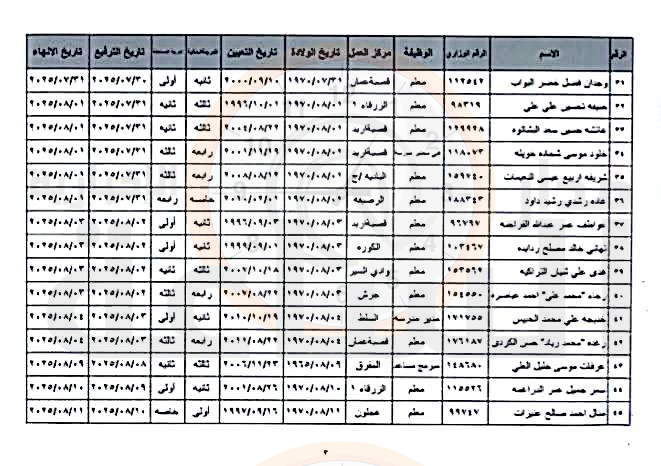 الرقم الاسم الرقم الوزاري الوظيفة مركز العمل تاريخ الولادة تاريخ التعيين تاريخ الترفيع تاريخ الانهاء
٣١ وجدان فضل خضر البواب ١١٢٥٤٢ معلم قصبة عمان ١٩٧٠/٠٧/٣١ ٢٠٠٠/٠٩/١٠ ثانيه أولى ٢٠٢٥/٠٧/٣٠ ٢٠٢٥/٠٧/٣١
٣٢ تحسين علي علي ٩٨٣١٩ معلم الزرقاء ١ ١٩٧٠/٠٨/٠١ ١٩٩٦/١٠/٠١ ثالثه ثانيه ٢٠٢٥/٠٧/٣١ ٢٠٢٥/٠٨/٠١
عائشه حسين سعد ١٢٩٩٢٨ معلم قصبة اربد ١٩٧٠/٠٨/٠١ ٢٠٠٤/٠٨/٢٢ ثالثه ثانيه ٢٠٢٥/٠٧/٣١ ٢٠٢٥/٠٨/٠١
خلود موسى شحاده ١١٨٠٧٣ قصبة اربد ١٩٧٠/٠٨/٠١ رابعه ثالثه ٢٠٢٥/٠٧/٣١ ٢٠٢٥/٠٨/٠١
٣٥ شريفه اربيع عيسى النعيمات ١٥٩٧٤٠ معلم ١٩٧٠/٠٨/٠١ ٢٠٠٨/٠٨/١٢ رابعه ثالثه ٢٠٢٥/٠٧/٣١ ٢٠٢٥/٠٨/٠١
٣٦ غاده رشدي رشيد داود ١٨٨٣٤٣ معلم الرصيفه ١٩٧٠/٠٨/٠١ ٢٠١٠/٠٢/٠١ خامسه رابعه ٢٠٢٥/٠٧/٣١ ٢٠٢٥/٠٨/٠١
٣٧ عواطف عمر عبدالله ٩٦٧٩٧ معلم قصبة اربد ١٩٧٠/٠٨/٠٣ ١٩٩٦/٠٩/٠٣ ثانيه أولى ٢٠٢٥/٠٨/٠٢ ٢٠٢٥/٠٨/٠٣
٣٨ خالد مصلح ردايده ١٠٣٤٦٧ معلم الكوره ١٩٧٠/٠٨/٠٣ ١٩٩٩/٠٩/٠١ ثانيه أولى ٢٠٢٥/٠٨/٠٢ ٢٠٢٥/٠٨/٠٣
٣٩ هدى علي ١٥٣٥٦٢ معلم وادي السير ١٩٧٠/٠٨/٠٣ ٢٠٠٧/١٠/١٨ ثالثه ثانيه ٢٠٢٥/٠٨/٠٢ ٢٠٢٥/٠٨/٠٣
٤٠ رغده "محمد علي" احمد ١٥٤٥٥٠ معلم جرش ١٩٧٠/٠٨/٠٣ ٢٠٠٧/٠٨/٢٢ رابعه ثالثه ٢٠٢٥/٠٨/٠٢ ٢٠٢٥/٠٨/٠٣
٤١ خديجه علي محمد ١٧١٧٥٥ مدير مدرسه السلط ١٩٧٠/٠٨/٠٤ ٢٠١٠/١٠/٢٩ ثانيه أولى ٢٠٢٥/٠٨/٠٣ ٢٠٢٥/٠٨/٠٤
٤٢ رغده "محمد زياد" حسن الكردي ١٧٦١٨٧ معلم قصبة عمان ١٩٧٠/٠٨/٠٤ ٢٠١١/٠٨/٢٢ رابعه ثالثه ٢٠٢٥/٠٨/٠٣ ٢٠٢٥/٠٨/٠٤
٤٣ عرفات موسى خليل العلي ١٤٨٦٨٠ مبرمج مساعد المفرق ١٩٦٥/٠٨/٠٩ ٢٠٠٦/١١/٢٣ ثالثه ثانيه ٢٠٢٥/٠٨/٠٨ ٢٠٢٥/٠٨/٠٩
٤٤ سمر جميل عمر ١١٥٥٢٦ معلم الزرقاء ١ ١٩٧٠/٠٨/١٠ ٢٠٠١/٠٨/٢٦ ثانيه أولى ٢٠٢٥/٠٨/٠٩ ٢٠٢٥/٠٨/١٠
٤٥ منال احمد صالح عنيزات ٩٩٧٤٧ معلم عجلون ١٩٧٠/٠٨/١١ ١٩٩٧/٠٩/١٦ أولى خاصه ٢٠٢٥/٠٨/١٠ ٢٠٢٥/٠٨/١١